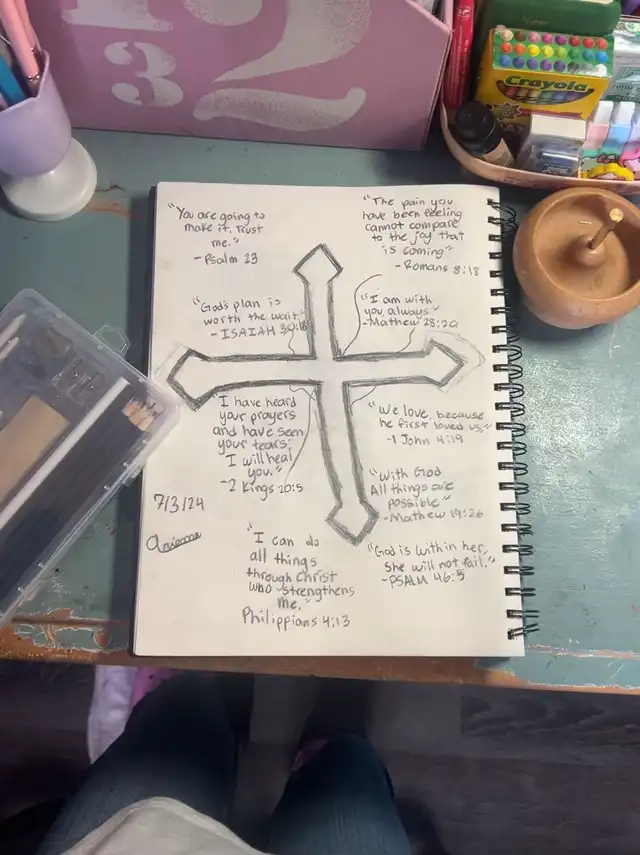 Crayola
"You are going to
make it. Trust
me."
-Psalm 23
"The pain you
have been feeling
cannot compare
to the joy that
is coming"
-Romans 8:18
"God's plan is
worth the wait."
-ISAIAH 30:18
"I am with
you always"
-Mathew 28:20
"I have heard
your prayers
and have seen
your tears;
I will heal
you."
-2 Kings 20:5
"We love, because
he first loved us,"
-1 John 4:19
"With God
All things are
possible"
-Mathew 19:26
7/3/24
"I can do
all things
through Christ
who strengthens
me."
Philippians 4:13
"God is within her,
She will not fail."
-PSALM 46:5